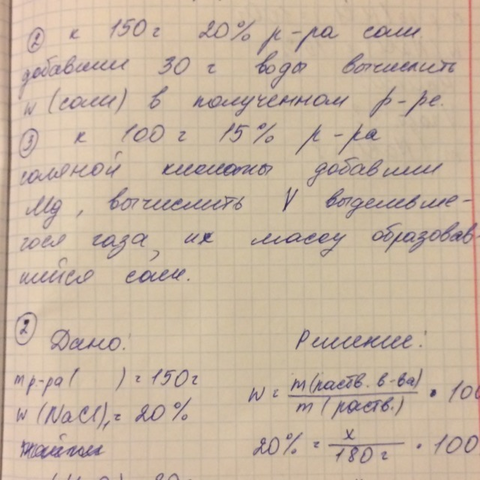 ② к 150 г 20% р-ра соли
добавили 30 г воды вычислить
w (соли) в полученном р-ре.
③ к 100 г 15% р-ра
соляной кислоты добавили
Mg, вычислить V выделивше-
гося газа, их массу образовав-
шийся соли.
② Дано: Решение:
m р-ра ( ) = 150 г
w = m(раств. в-ва) / m (раств.) · 100
w (NaCl)₁ = 20%
20% = x / 180 г · 100